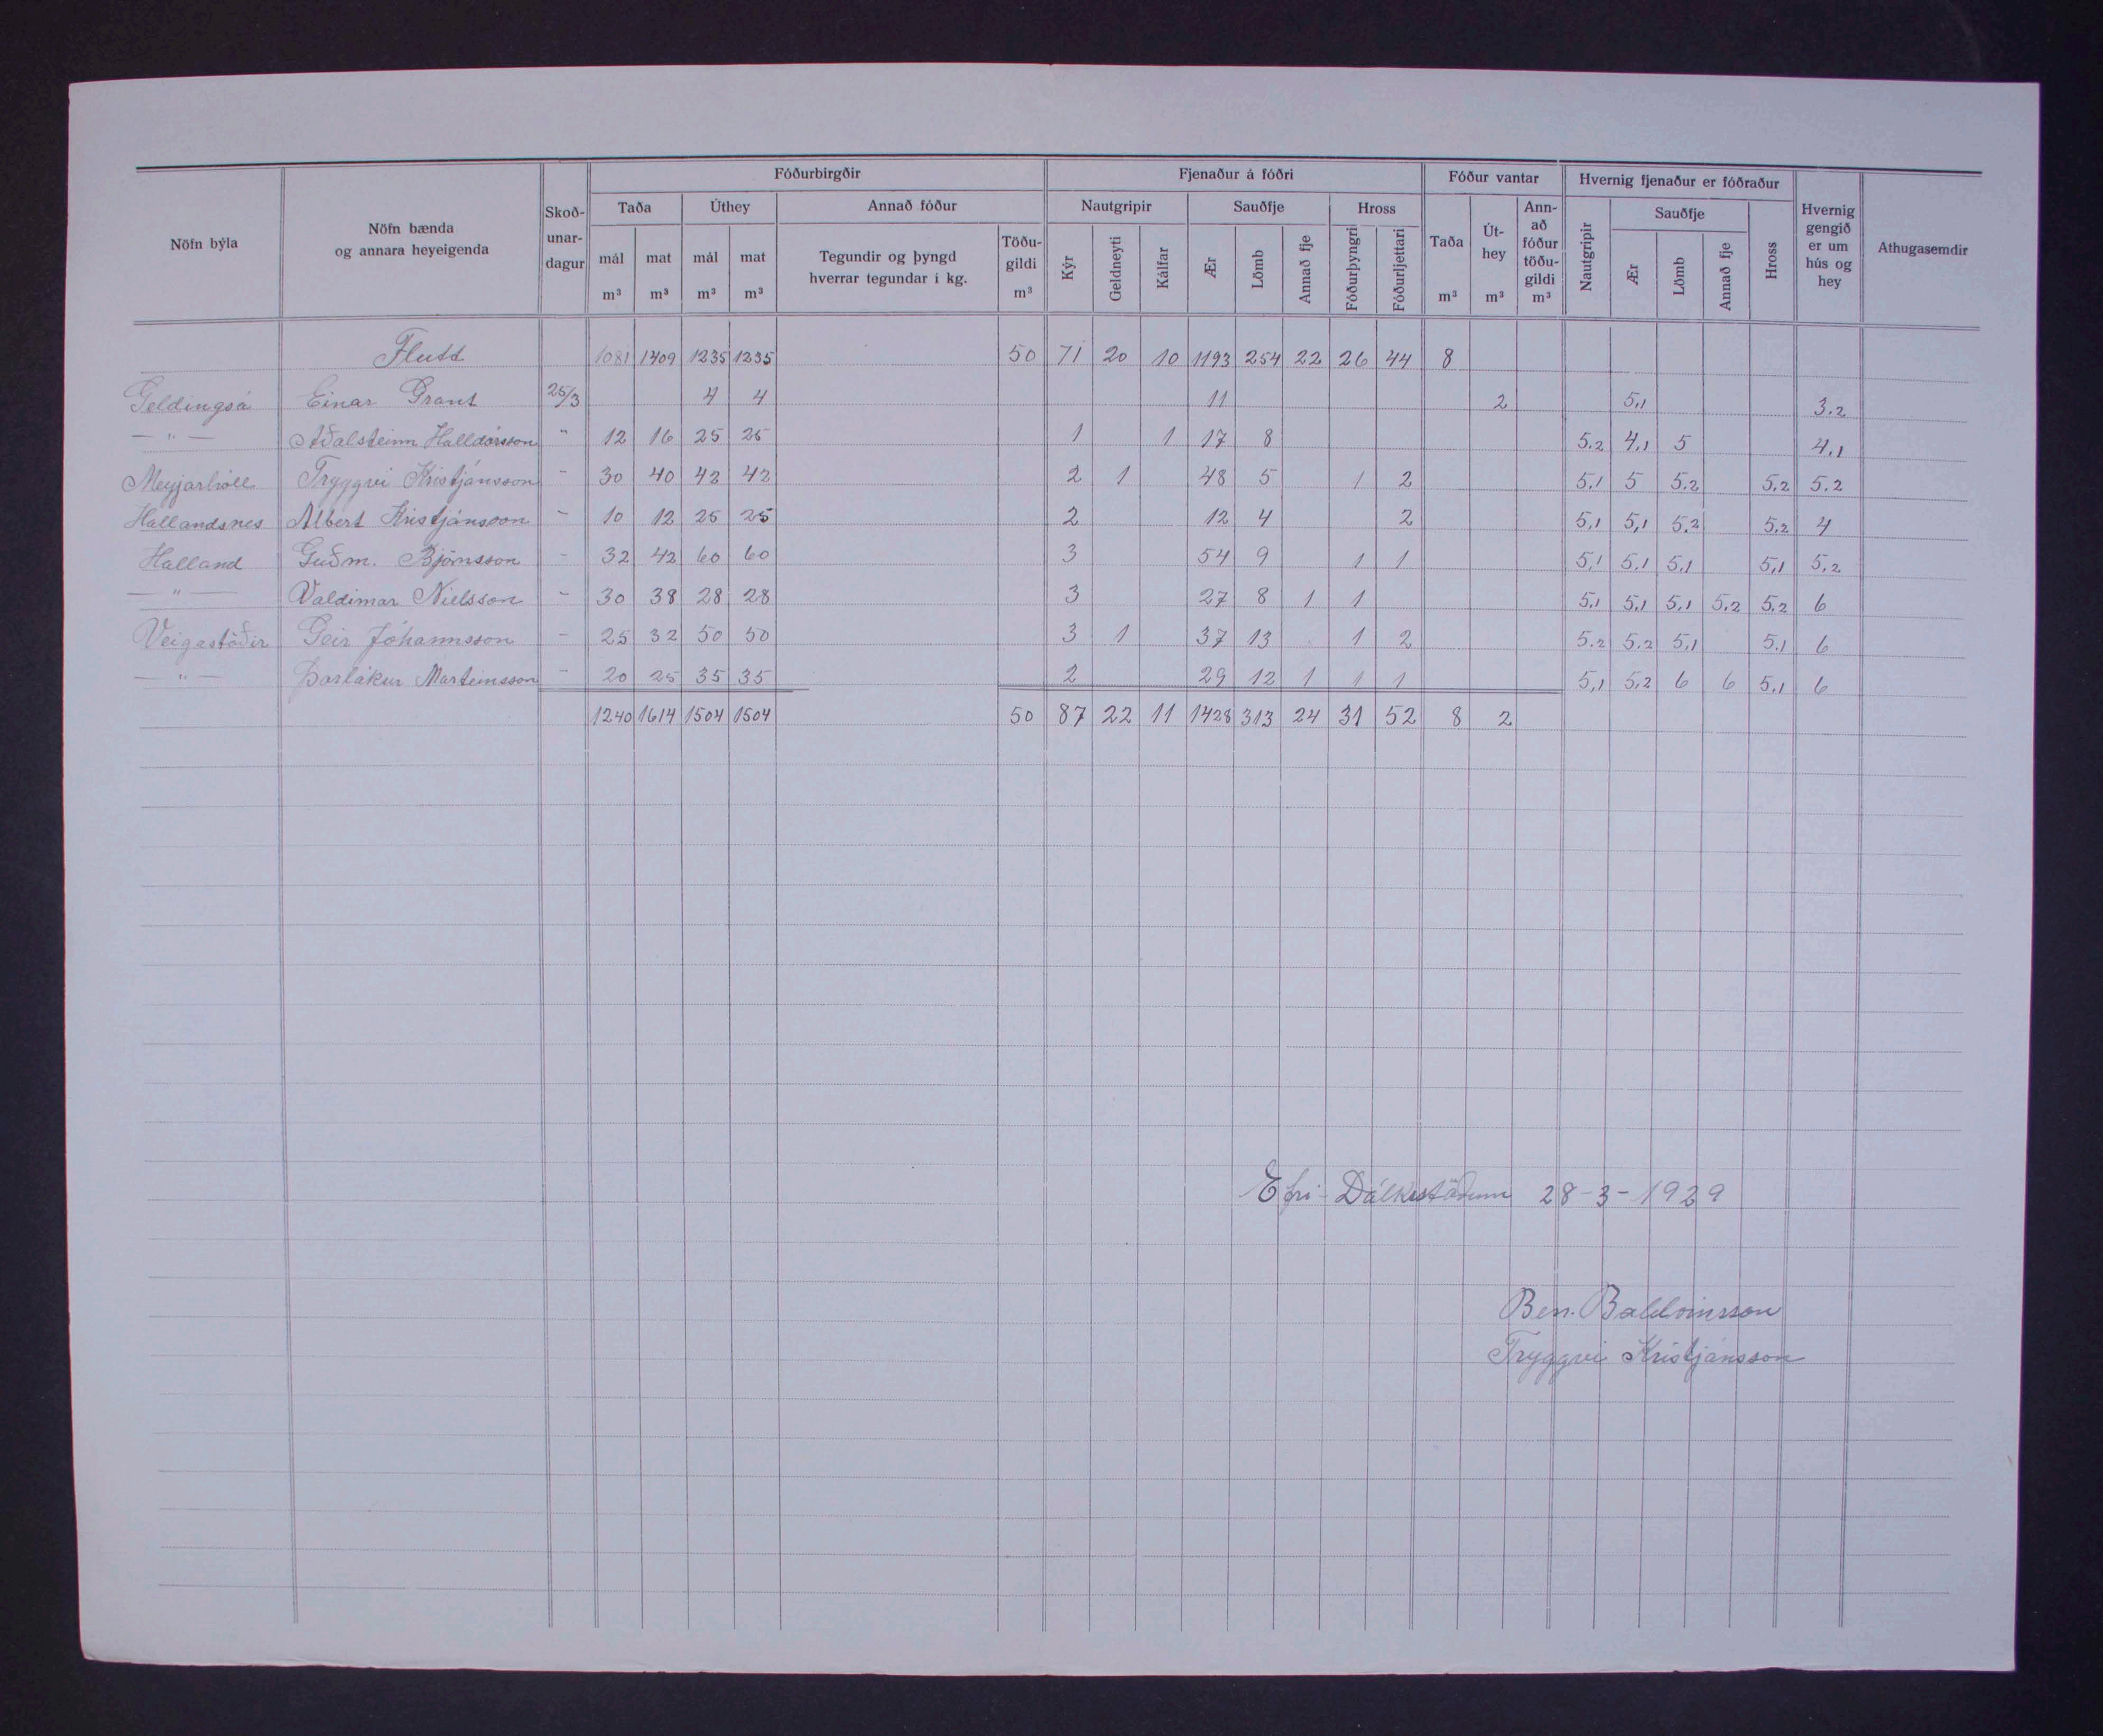 Fóðurbirgðir Fjenaður á fóðri Fóður vantar Hvernig fjenaður er fóðraður
Nöfn býla Nöfn bænda og annara heyeigenda Skoð-unar-dagur Taða Úthey Annað fóður Nautgripir Sauðfje Hross Taða m³ Út-hey m³ Ann-að fóður töðu-gildi m³ Nautgripir Sauðfje Hross Hvernig gengið er um hús og hey Athugasemdir
mál m³ mat m³ mál m³ mat m³ Tegundir og þyngd hverrar tegundar í kg. Töðu-gildi m³ Kýr Geldneyti Kálfar Ær Lömb Annað fje Fóðurþyngri Fóðurljettari Ær Lömb Annað fje
Flutt 1081 1409 1235 1235 50 71 20 10 1193 254 22 26 44 8
Geldingsá Einar Grant 25/3 4 4 11 2 5,1 3.2
— " — Aðalsteinn Halldórsson " 12 16 25 25 1 1 17 8 5.2 4,1 5 4,1
Meyjarhóll Tryggvi Kristjánsson - 30 40 42 42 2 1 48 5 1 2 5,1 5 5.2 5,2 5.2
Hallandsnes Albert Kristjánsson - 10 12 25 25 2 12 4 2 5,1 5,1 5,2 5,2 4
Halland Guðm. Björnsson - 32 42 60 60 3 54 9 1 1 5,1 5,1 5,1 5,1 5,2
— " — Valdimar Níelsson - 30 38 28 28 3 27 8 1 1 5,1 5,1 5,1 5,2 5,2 6
Veigastöðir Geir Jóhannsson - 25 32 50 50 3 1 37 13 1 2 5.2 5,2 5,1 5,1 6
— " — Þorlákur Marteinsson - 20 25 35 35 2 29 12 1 1 1 5,1 5,2 6 6 5,1 6
1240 1614 1504 1504 50 87 22 11 1428 313 24 31 52 8 2
Efri-Dálkstöðum 28-3-1929
Ben. Baldvinsson
Tryggvi Kristjánsson